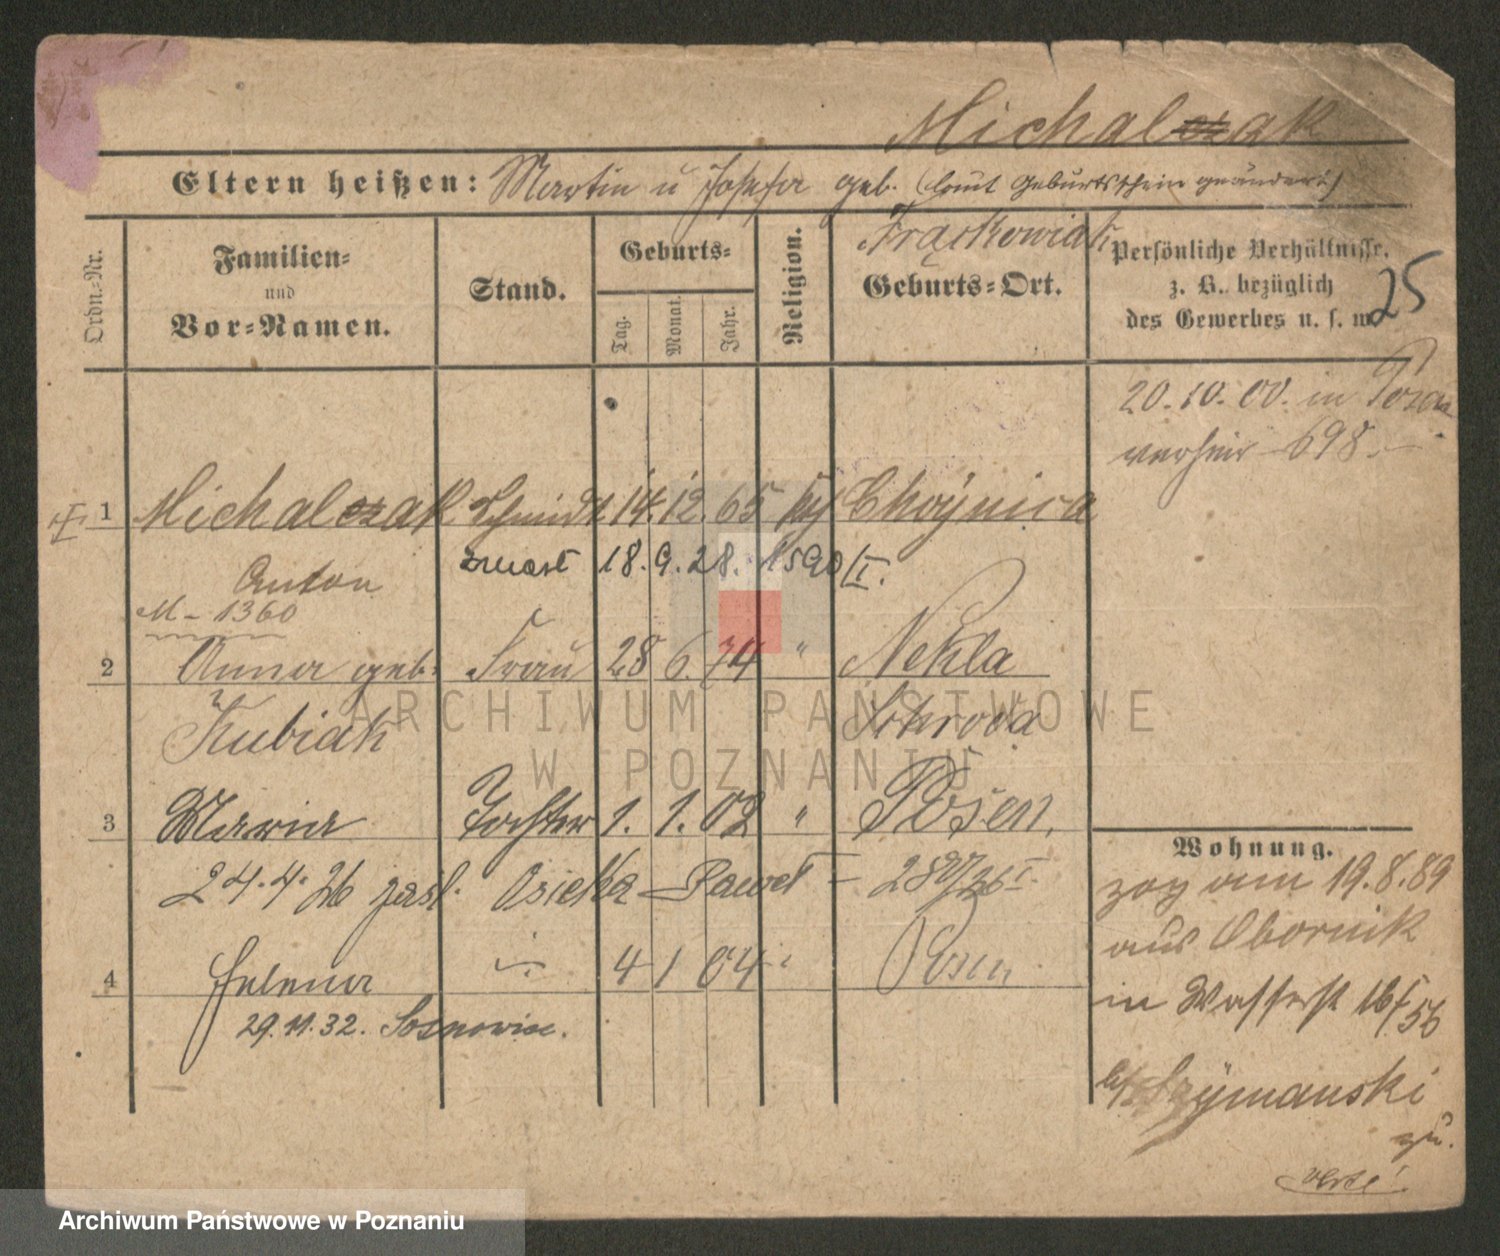 Michalczak
Eltern heißen: Martin u Josefa geb. (laut Geburtsschein geändert)
Frąckowiak
Ordn.-Nr.
Familien-
und
Vor-Namen.
Stand.
Geburts-
Tag.
Monat.
Jahr.
Religion.
Geburts-Ort.
Persönliche Verhältnisse,
z. B. bezüglich
des Gewerbes u. s. w.
25
20.10.00. in Posen
verheir 698.
1 Michalczak Schmidt 14. 12. 65 Choynica
Anton zmarł 18. 9. 28. 1590/II.
M - 1360
2 Anna geb. Frau 28 6. 74 " Nekla
Kubiak Schroda
3 Maria Tochter 1. 1. 02 " Posen.
24.4. 26 zaśl. Osiecka Paweł
4 Helena 4 1 04 Posen
29.11.32. Sosnowice.
Wohnung.
zog am 19.8.89
aus Obornik
in Wasserst 16/56
b/Szymanski
zu.
ARCHIWUM PAŃSTWOWE
W POZNANIU
Archiwum Państwowe w Poznaniu